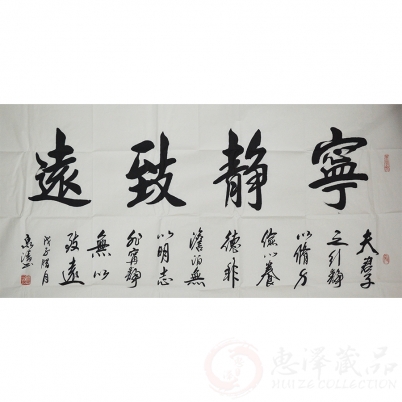 寧靜致遠
夫君子
之行靜
以脩身
儉以養
德非
澹泊無
以明志
非寧靜
無以
致遠
戊子
月
惠泽藏品
HUIZE COLLECTION